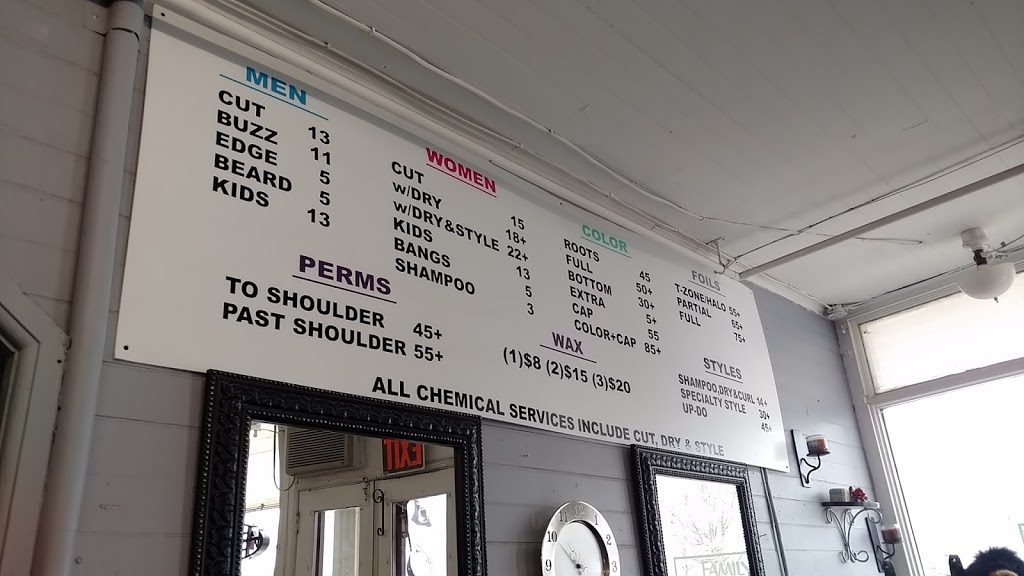 MEN
CUT 13
BUZZ 11
EDGE 5
BEARD 5
KIDS 13
PERMS
TO SHOULDER 45+
PAST SHOULDER 55+
WOMEN
CUT 15
w/DRY 18+
w/DRY&STYLE 22+
KIDS 13
BANGS 5
SHAMPOO 3
COLOR
ROOTS 45
FULL 50+
BOTTOM 30+
EXTRA 5+
CAP 55
COLOR+CAP 85+
WAX
(1)$8 (2)$15 (3)$20
FOILS
T-ZONE/HALO 55+
PARTIAL 65+
FULL 75+
STYLES
SHAMPOO,DRY&CURL 14+
SPECIALTY STYLE 30+
UP-DO 45+
ALL CHEMICAL SERVICES INCLUDE CUT, DRY & STYLE
EXIT
FAMILY